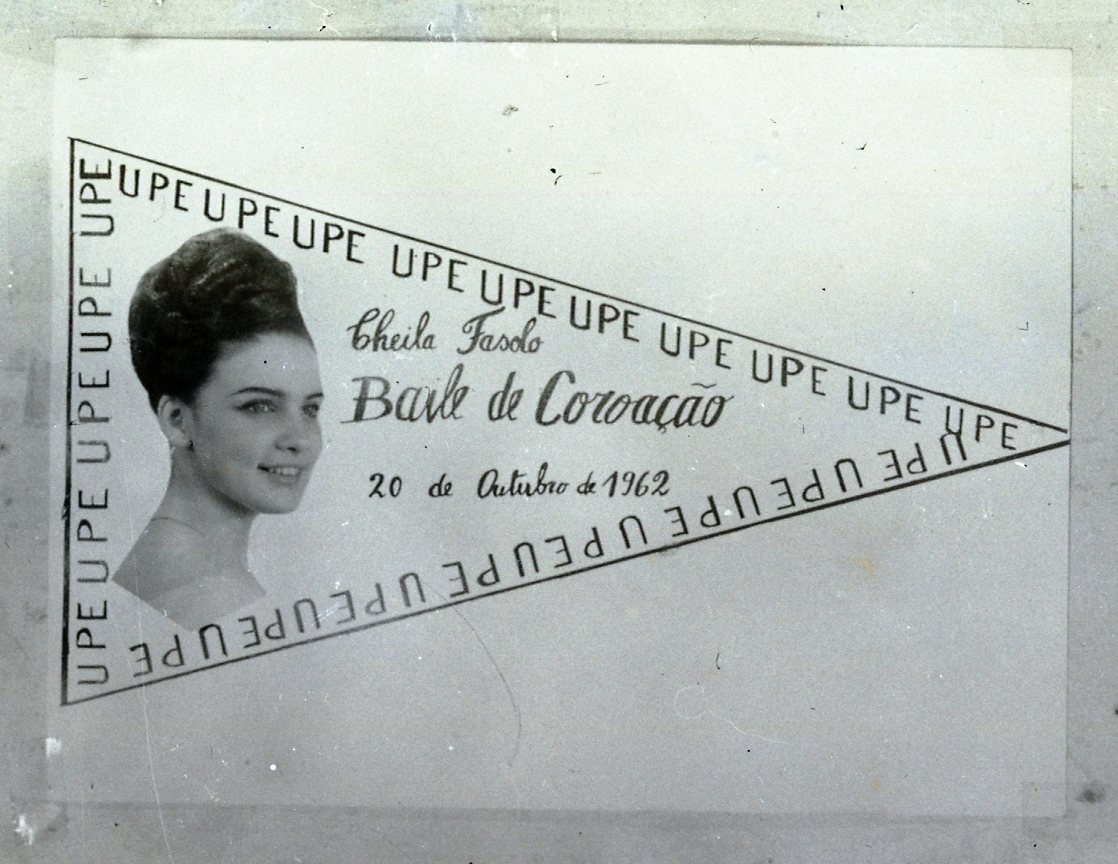 UPE UPE UPE UPE UPE UPE UPE UPE UPE UPE
UPE UPE UPE UPE UPE
Cheila Fasolo
Baile de Coroação
20 de Outubro de 1962
UPE UPE UPE UPE UPE UPE UPE UPE